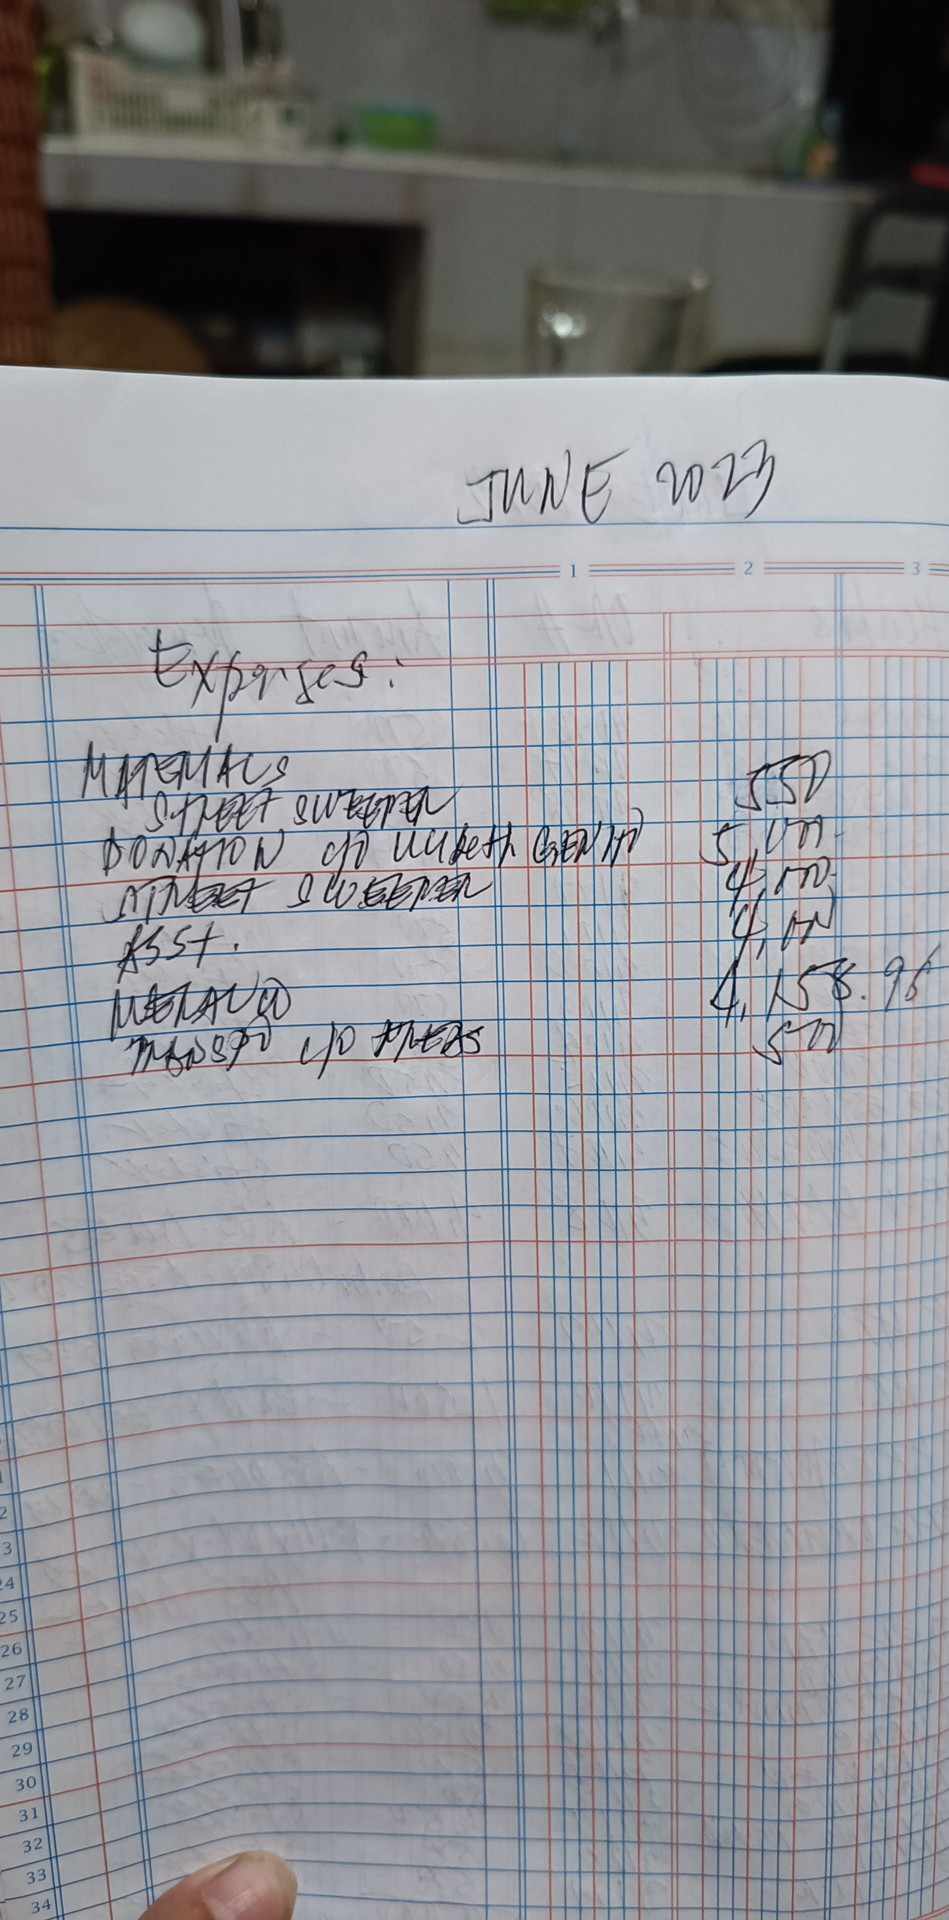 JUNE 2023
1 2 3
Expenses:
MATERIALS
STREET SWEEPER 550
DONATION c/o 5,000
STREET SWEEPER 4,000
ASST. 4,000
MERALCO 4,158.96
TRANSPO c/o TREAS 500
2
3
24
25
26
27
28
29
30
31
32
33
34